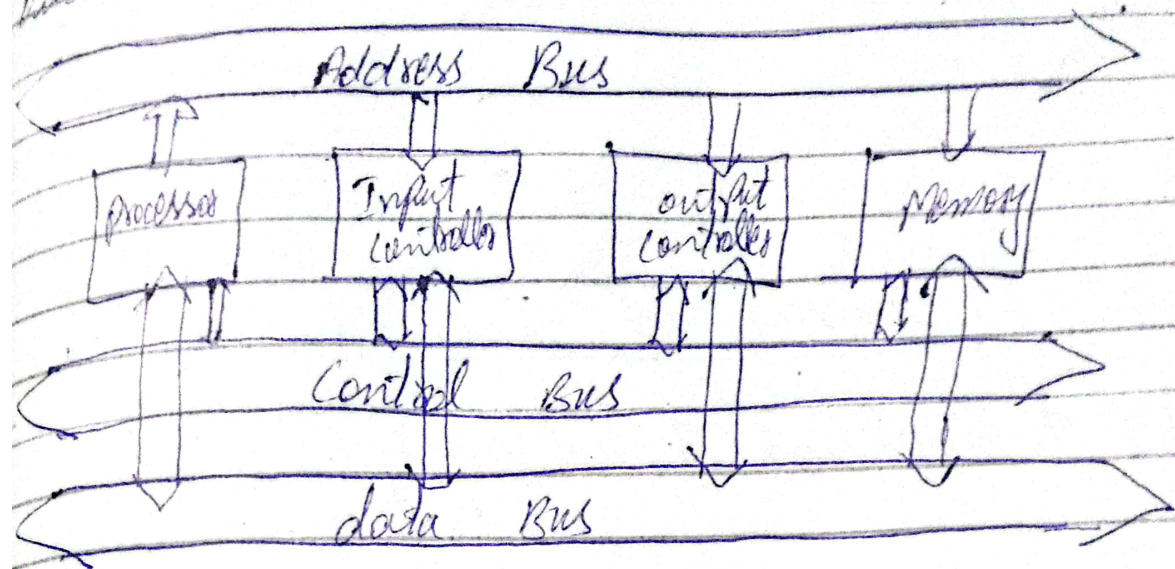 Address Bus
processor
Input
controller
output
controller
Memory
Control Bus
data Bus